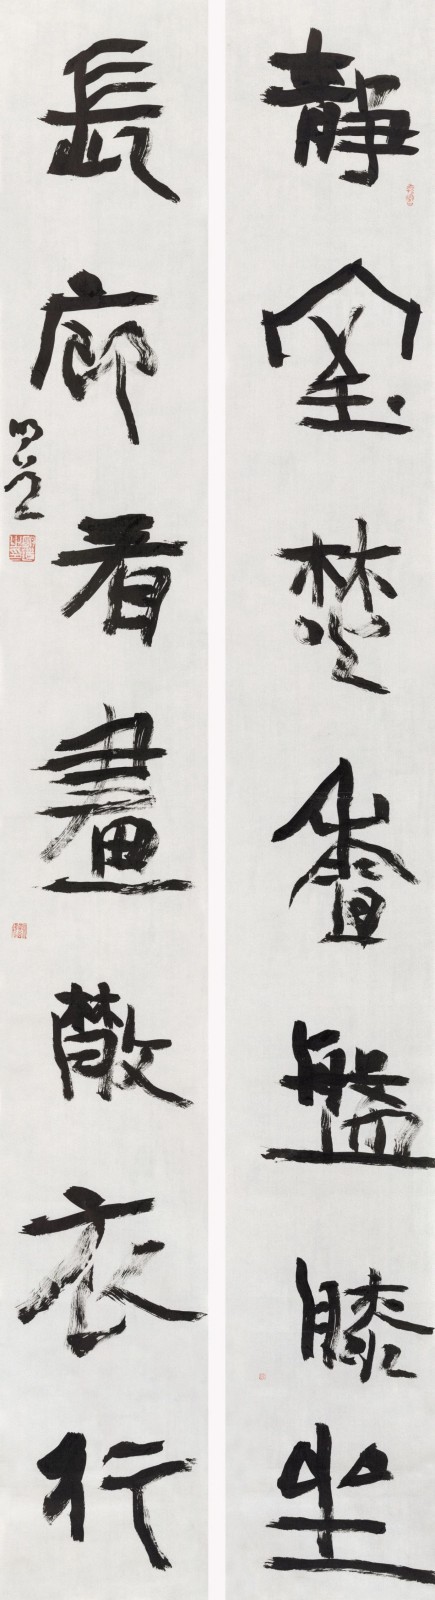 靜室焚香盤膝坐
長廊看畫散衣行